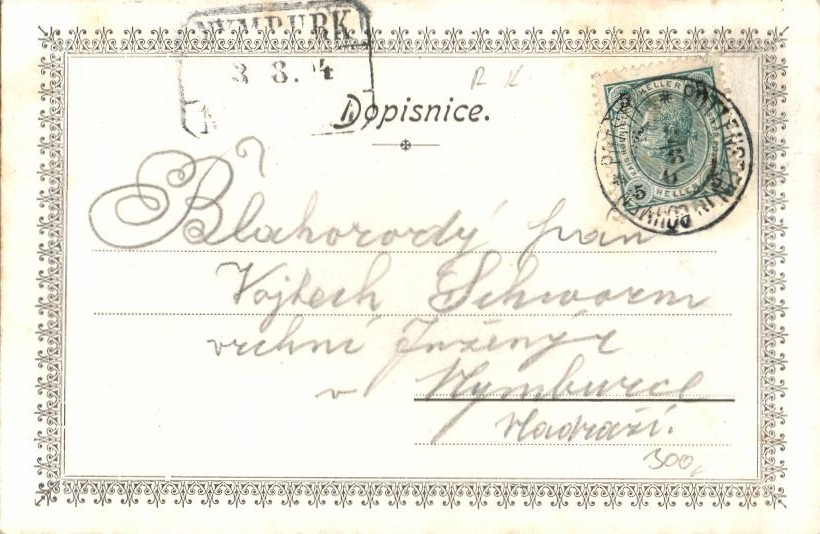 NYMBURK
3 8. 4
Dopisnice.
R K
5
HELLER
HELLER
5
Blahorodý pan
Vojtech Schworm
vrchní Inženýr
v Nymburce
Nádraží.
300,